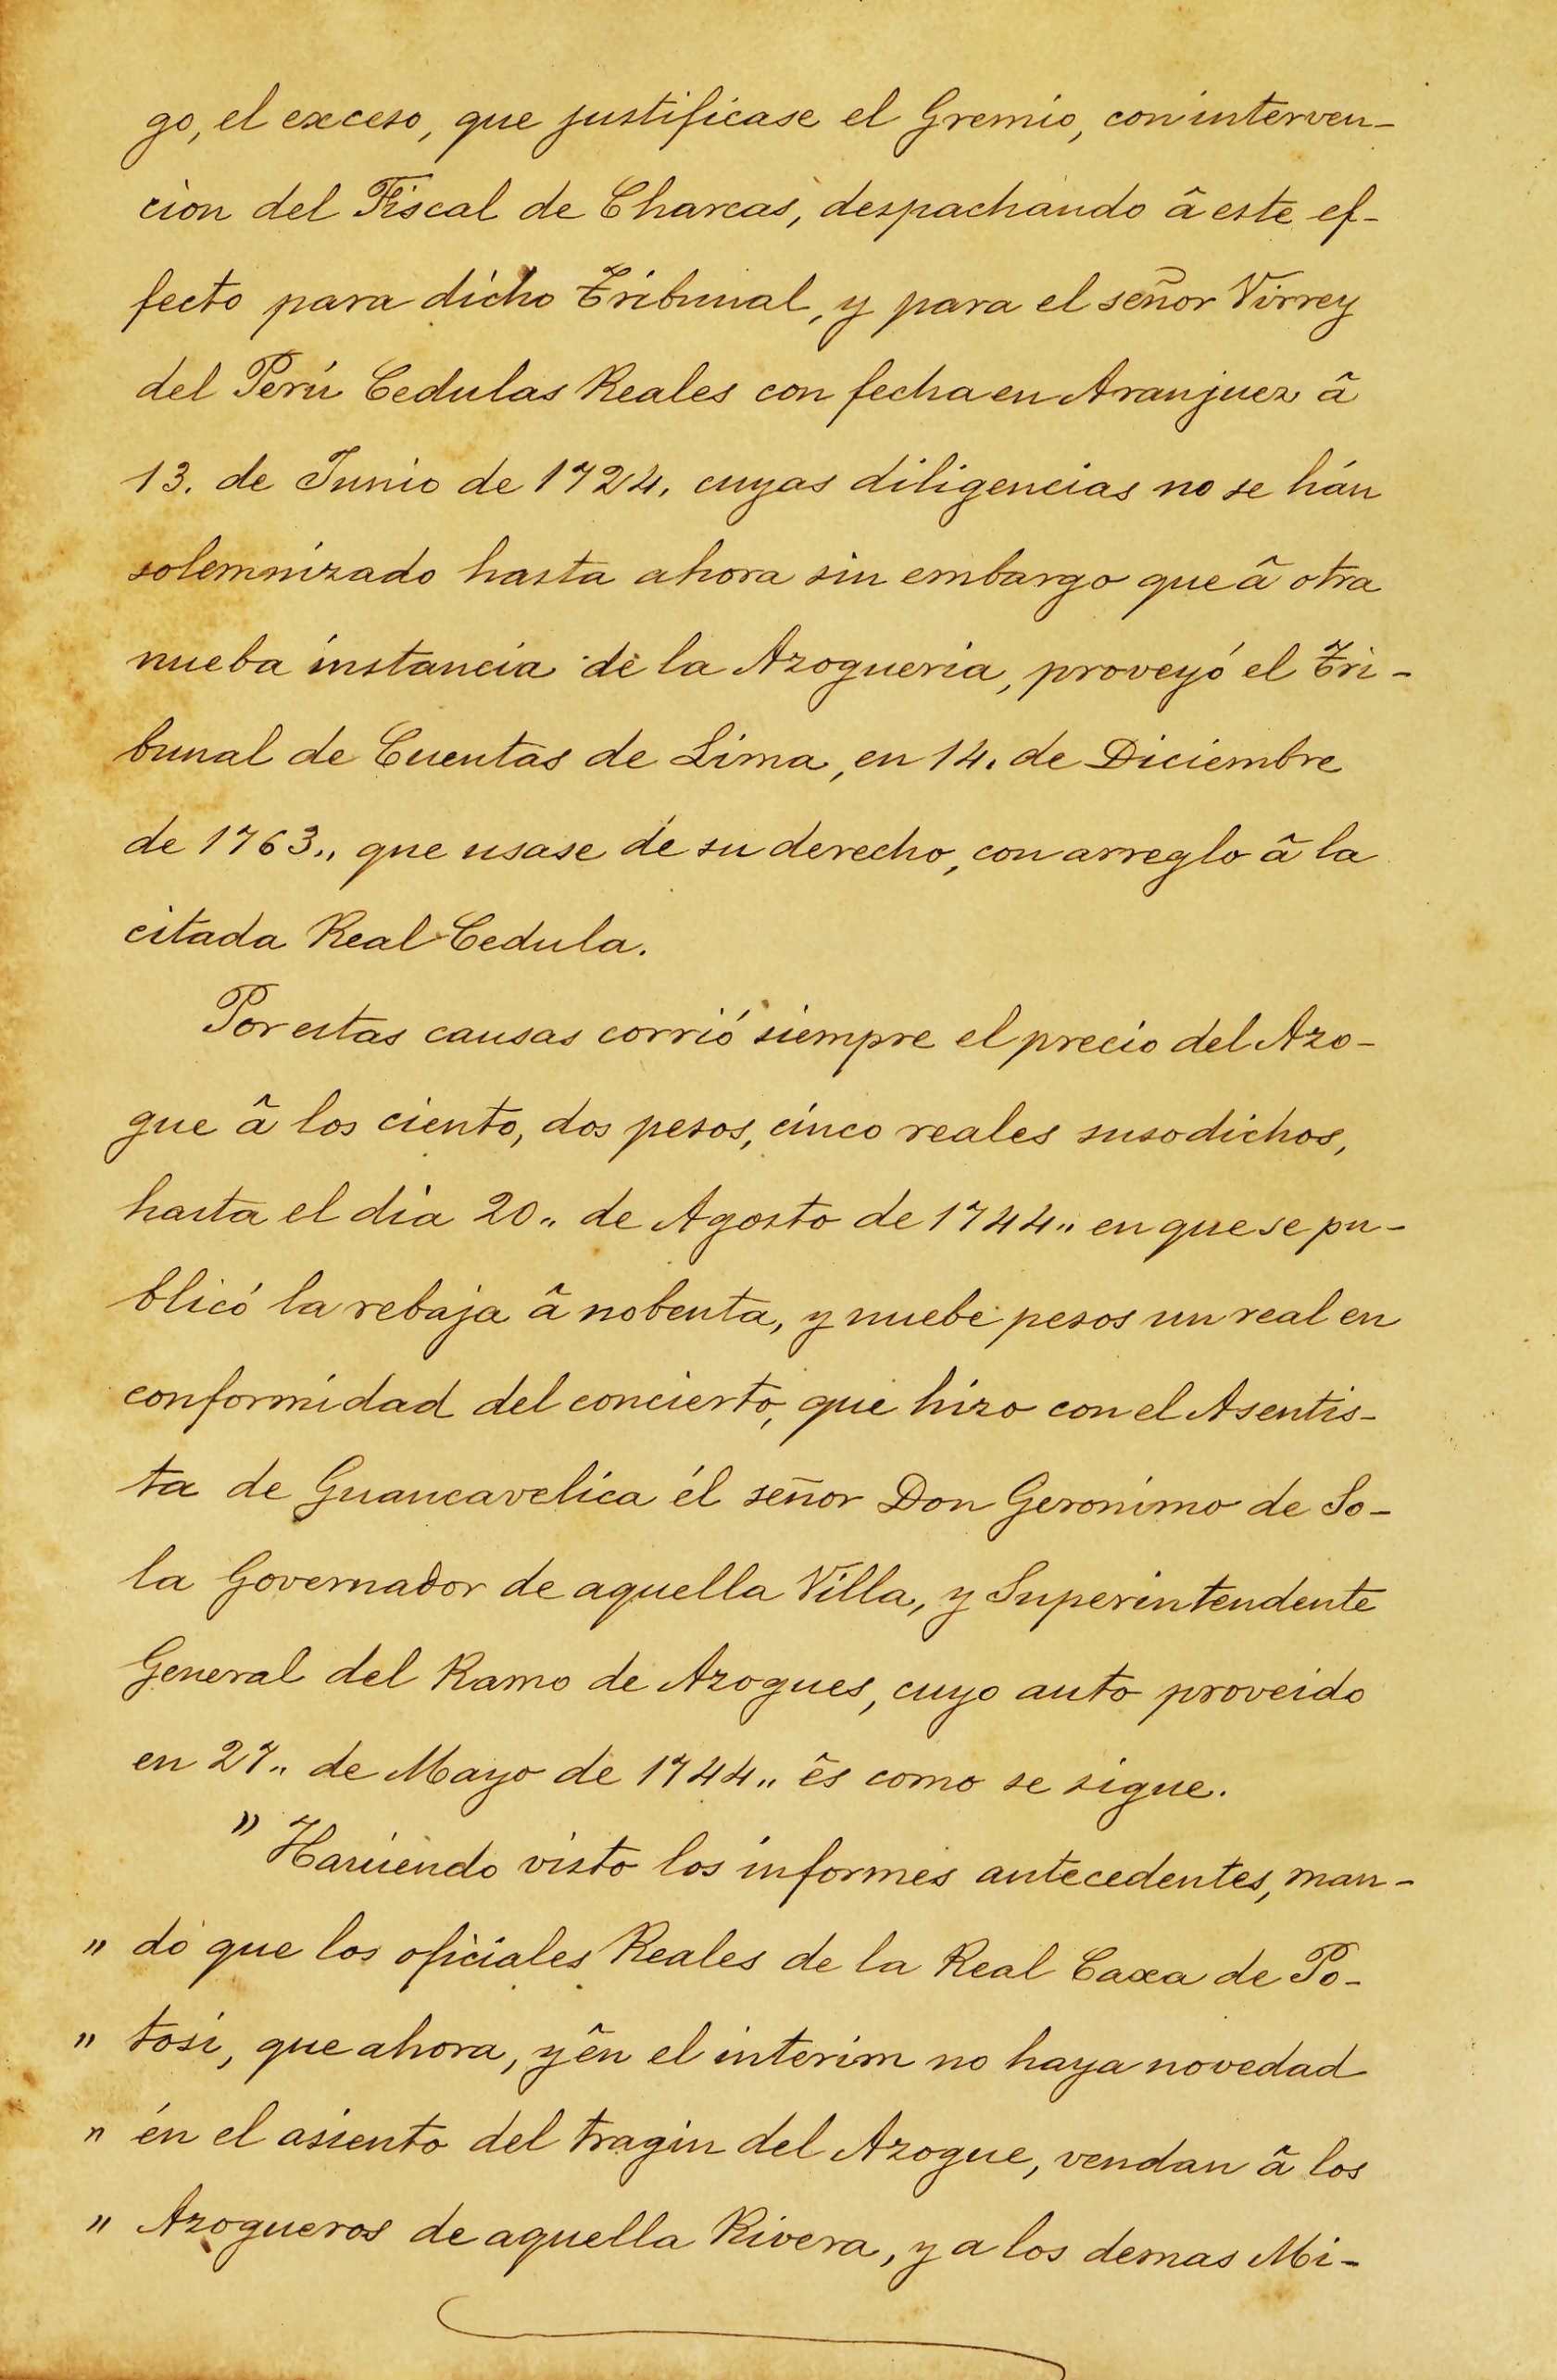 go, el exceso, que justificase el Gremio, con interven-
cion del Fiscal de Charcas, despachando â este ef-
fecto para dicho Tribunal, y para el señor Virrey
del Perú Cedulas Reales con fecha en Aranjuez â
13. de Junio de 1724. cuyas diligencias no se hán
solemnizado hasta ahora sin embargo que â otra
nueba instancia de la Azogueria, proveyó el Tri-
bunal de Cuentas de Lima, en 14. de Diciembre
de 1763,, que usase de su derecho, con arreglo â la
citada Real Cedula.
Por estas causas corrió siempre el precio del Azo-
gue â los ciento, dos pesos, cinco reales susodichos,
hasta el dia 20,, de Agosto de 1744,, en que se pu-
blicó la rebaja â nobenta, y nuebe pesos un real en
conformidad del concierto, que hizo con el Asentis-
ta de Guancavelica él señor Don Geronimo de So-
la Governador de aquella Villa, y Superintendente
General del Ramo de Azogues, cuyo auto proveido
en 27,, de Mayo de 1744,, ês como se sigue.
" Haviendo visto los informes antecedentes, man-
" do que los oficiales Reales de la Real Caxa de Po-
" tosi, que ahora, y ên el interim no haya novedad
" én el asiento del tragin del Azogue, vendan â los
" Azogueros de aquella Rivera, y a los demas Mi-